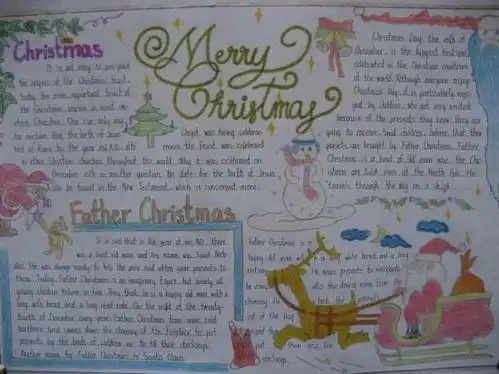 Christmas
It is not easy to pin-point
the origins of the Christmas feast,
today the most important feast of
the Christmas season in most we-
stern Churches. One can only say
for certain that the birth of Jesus
in other Christian churches throughout the world. Why it was celebrated on
December 25th is another question. No date for the birth of Jesus
can be found in the New Testament, which is concerned more
Merry
Christmas
Christ was being celebra-
means the feast was celebrated
Christmas Day, the 25th of
December, is the biggest festival
celebrated in the Christian countries
of the world. Although everyone enjoys
Christmas Day, it is particularly enjo-
yed by children, who get very excited
because of the presents they know they are
going to receive. Small children believe that their
presents are brought by Father Christmas. Father
Christmas is a kind of old man who, the
are told, lives at the North Pole. He
travels through the sky on a sleigh
Father Christmas
It is said that in the year of 300 AD, there
was a kind old man and his name was Saint Nich-
olas. He was always ready to help the poor and often gave presents to
them. Today, Father Christmas is an imaginary figure, but nearly all
young children believe in him. They think he is a happy old man with a
long white beard and a long red robe. On the night of the twenty-
fourth of December every year, Father Christmas from some cold
northern land comes down the chimney of the fireplace to put
presents by the beds of children or to fill their stockings.
Another name for Father Christmas is Santa Claus.
Father Christmas is a
happy old man with a long white beard and a long
He drops presents to everybody
put them into the
stockings.